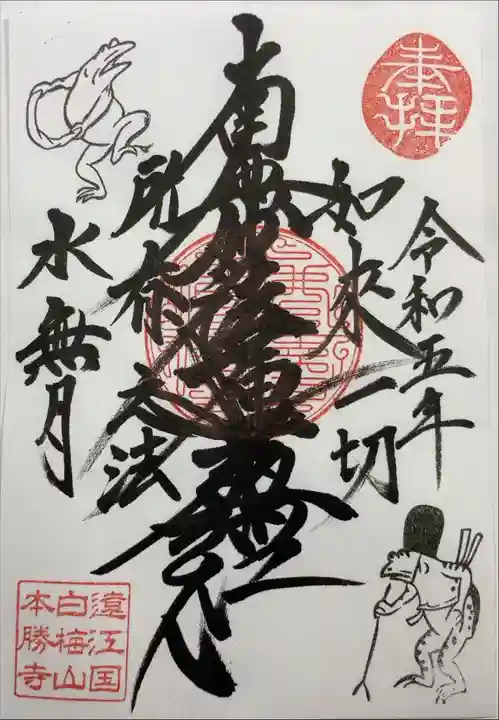 奉拝
令和五年
如来一切
南無妙法蓮華経
所有之法
水無月
遠江国
白梅山
本勝寺